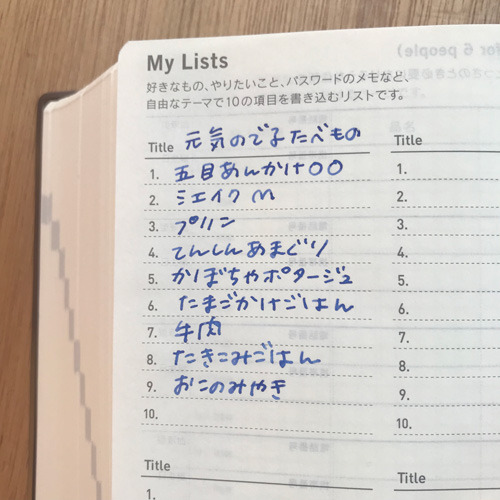 My Lists
好きなもの、やりたいこと、パスワードのメモなど、
自由なテーマで10の項目を書き込むリストです。
Title 元気のでるたべもの
1. 五目あんかけ〇〇
2. シエイクM
3. プリン
4. てんしんあまぐり
5. かぼちゃポタージュ
6. たまごかけごはん
7. 牛肉
8. たきこみごはん
9. おこのみやき
10.
Title
1.
Title
1.
2.
3.
4.
5.
6.
7.
8.
9.
10.
Title
for 6 people)